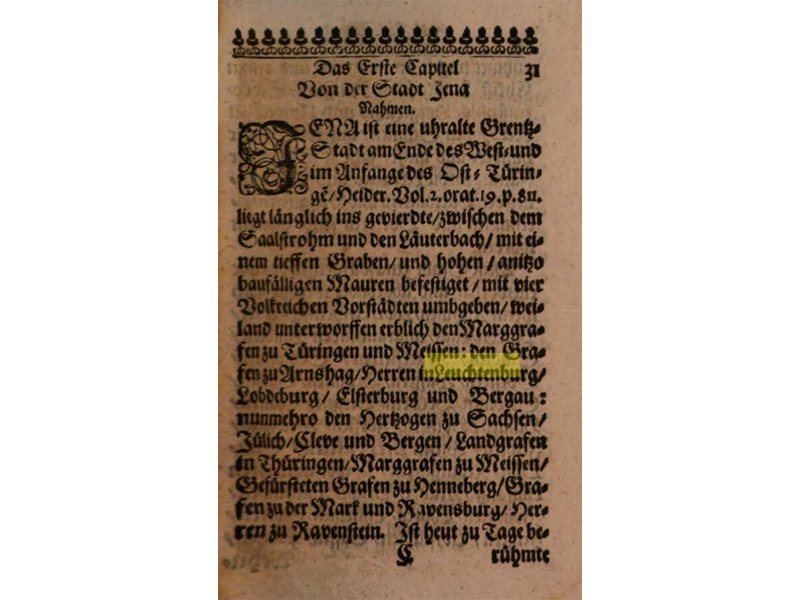 Das Erste Capitel 31
Von der Stadt Jena
Nahmen.
JENA ist eine uhralte Grentz-
Stadt am Ende des West- und
im Anfange des Ost- Türin-
gē/Heider. Vol. 2. orat. 19. p. 811.
liegt länglich ins gevierdte/zwischen dem
Saalstrohm und den Läuterbach/ mit ei-
nem tieffen Graben/ und hohen / anitzo
baufälligen Mauren befestiget / mit vier
Volkreichen Vorstädten umbgeben/ wei-
land unterworffen erblich den Marggra-
fen zu Türingen und Meissen: den Gra-
fen zu Arnshag/Herren in Leuchtenburg/
Lobdeburg/ Elsterburg und Bergau:
nunmehro den Hertzogen zu Sachsen/
Jülich/Cleve und Bergen / Landgrafen
in Thüringen/Marggrafen zu Meissen/
Gefürsteten Grafen zu Henneberg/Gra-
fen zu der Mark und Ravensburg/ Her-
ren zu Ravenstein. Ist heut zu Tage be-
C rühmte